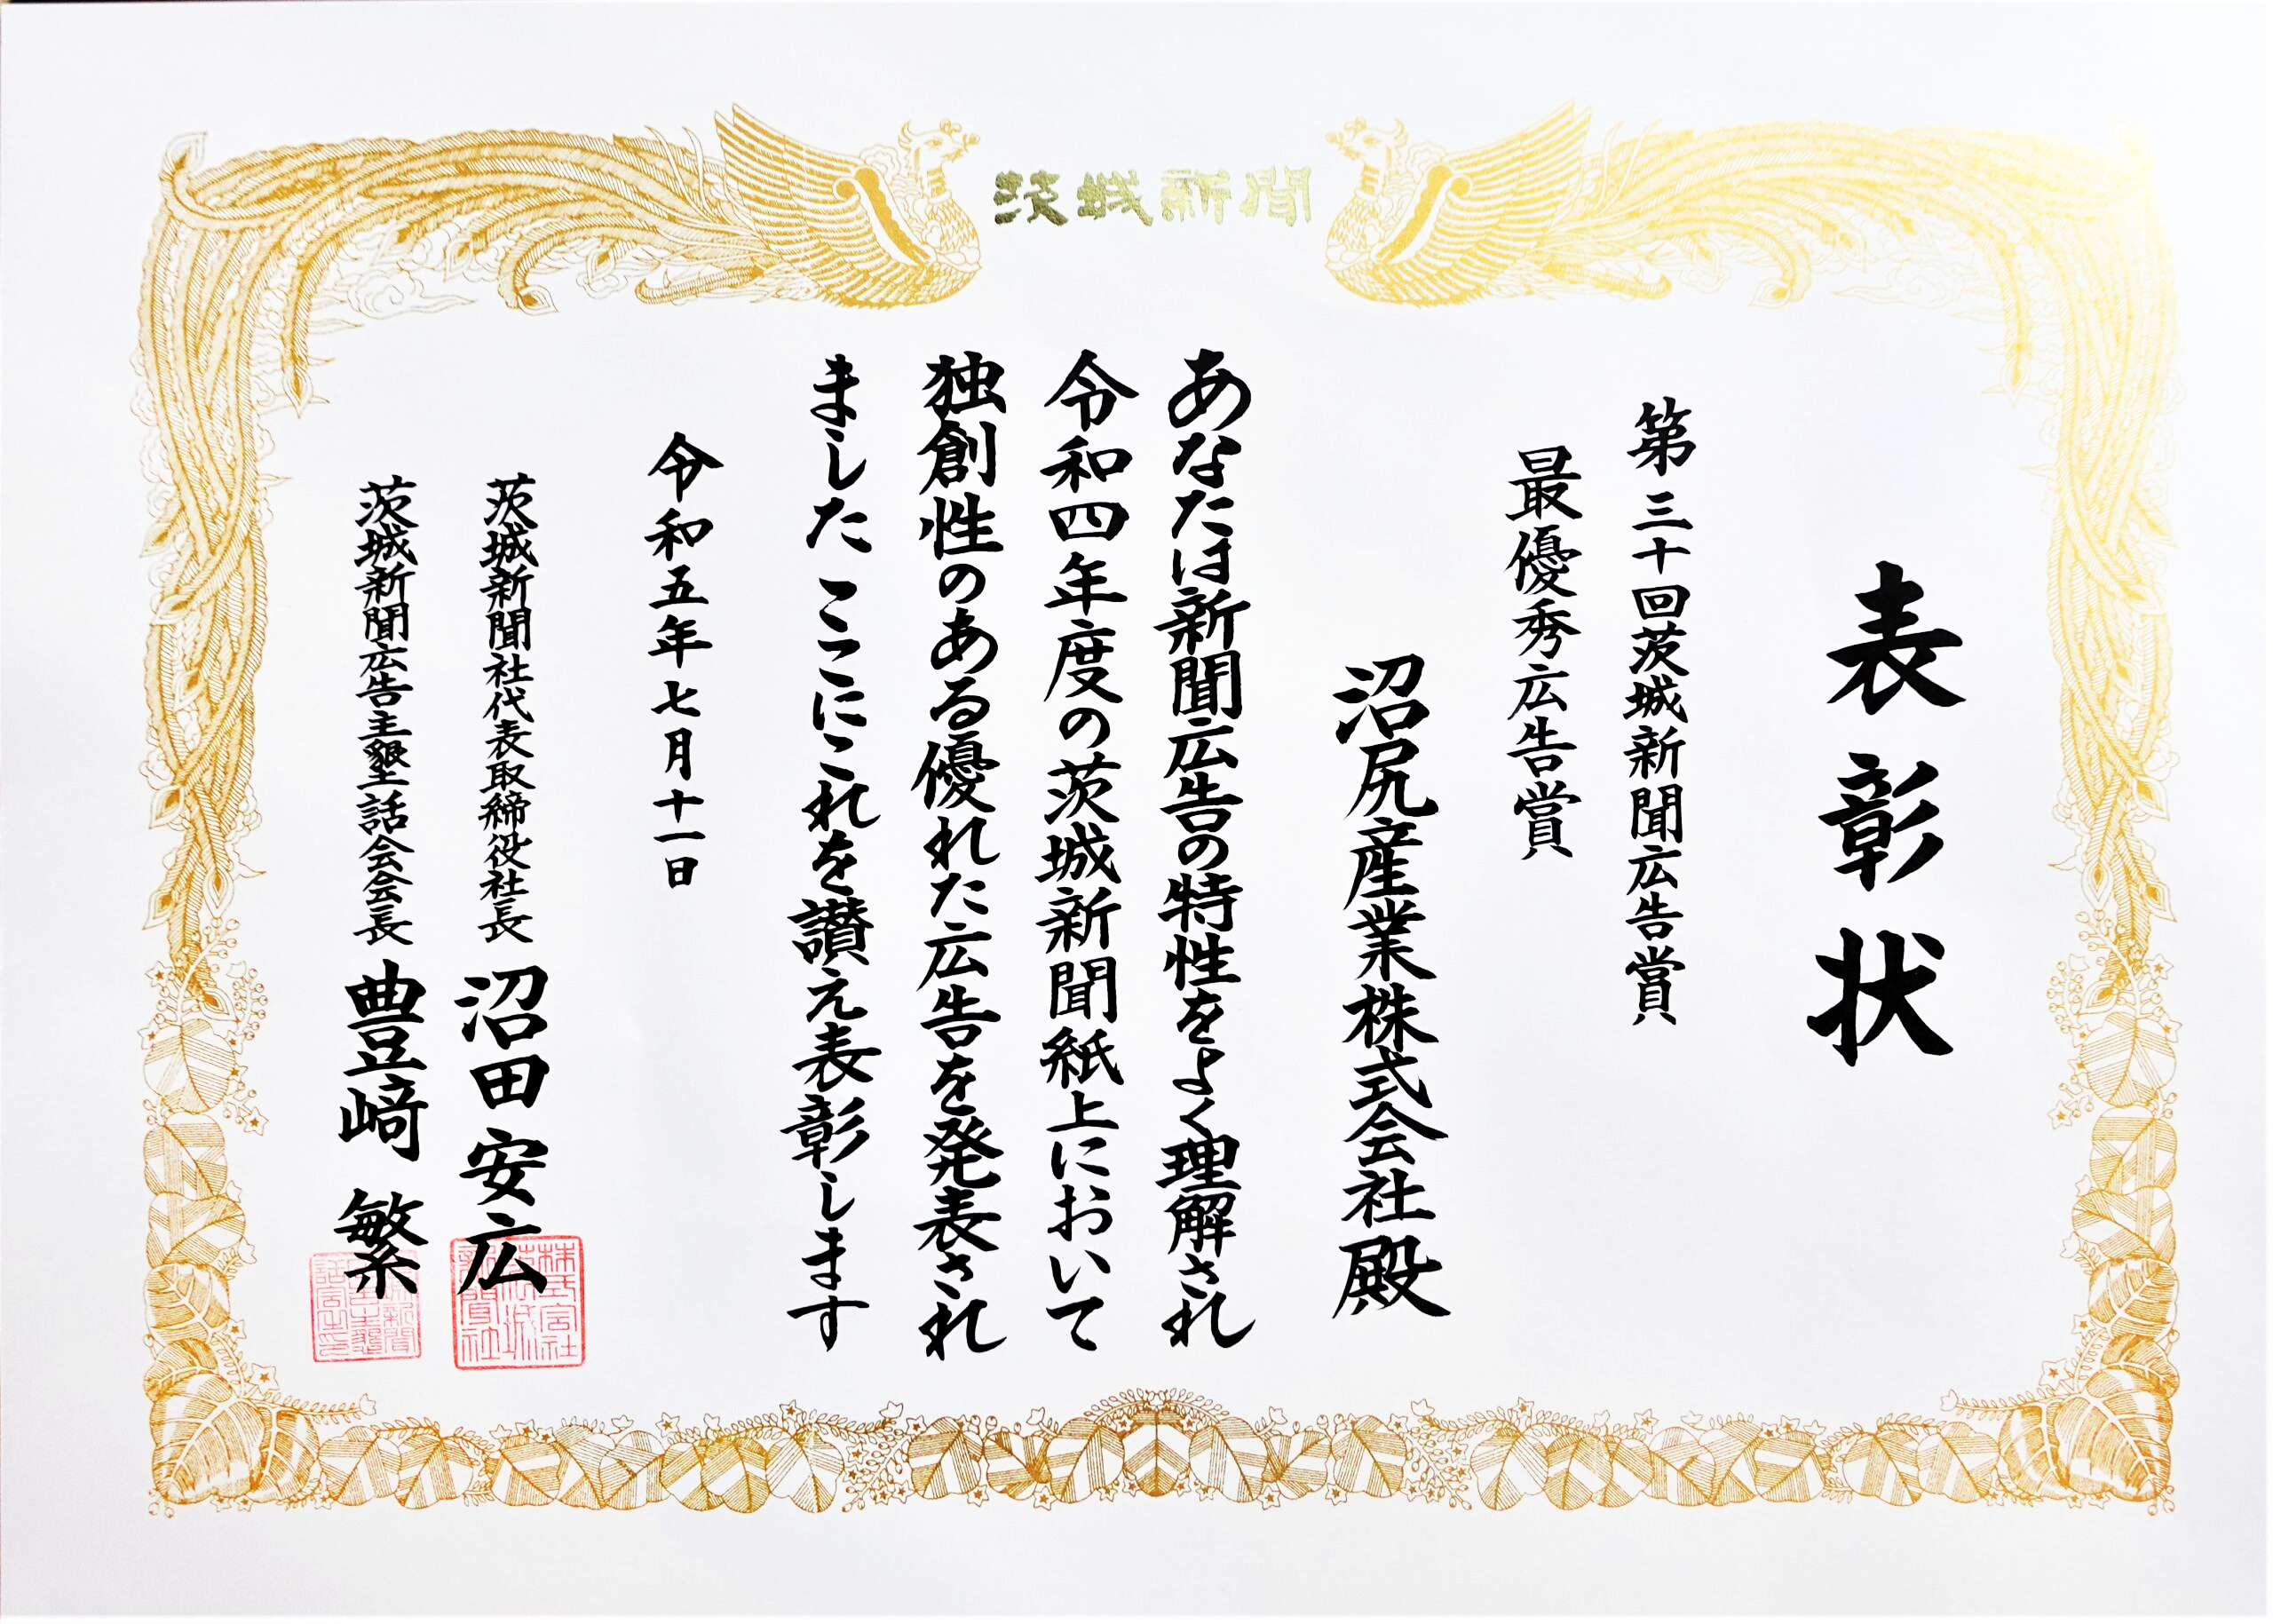 茨城新聞
表彰状
第三十回茨城新聞広告賞
最優秀広告賞
沼尻産業株式会社殿
あなたは新聞広告の特性をよく理解され
令和四年度の茨城新聞紙上において
独創性のある優れた広告を発表され
ました ここにこれを讃え表彰します
令和五年七月十一日
茨城新聞社代表取締役社長 沼田安広
茨城新聞広告主懇話会会長 豊﨑 繁